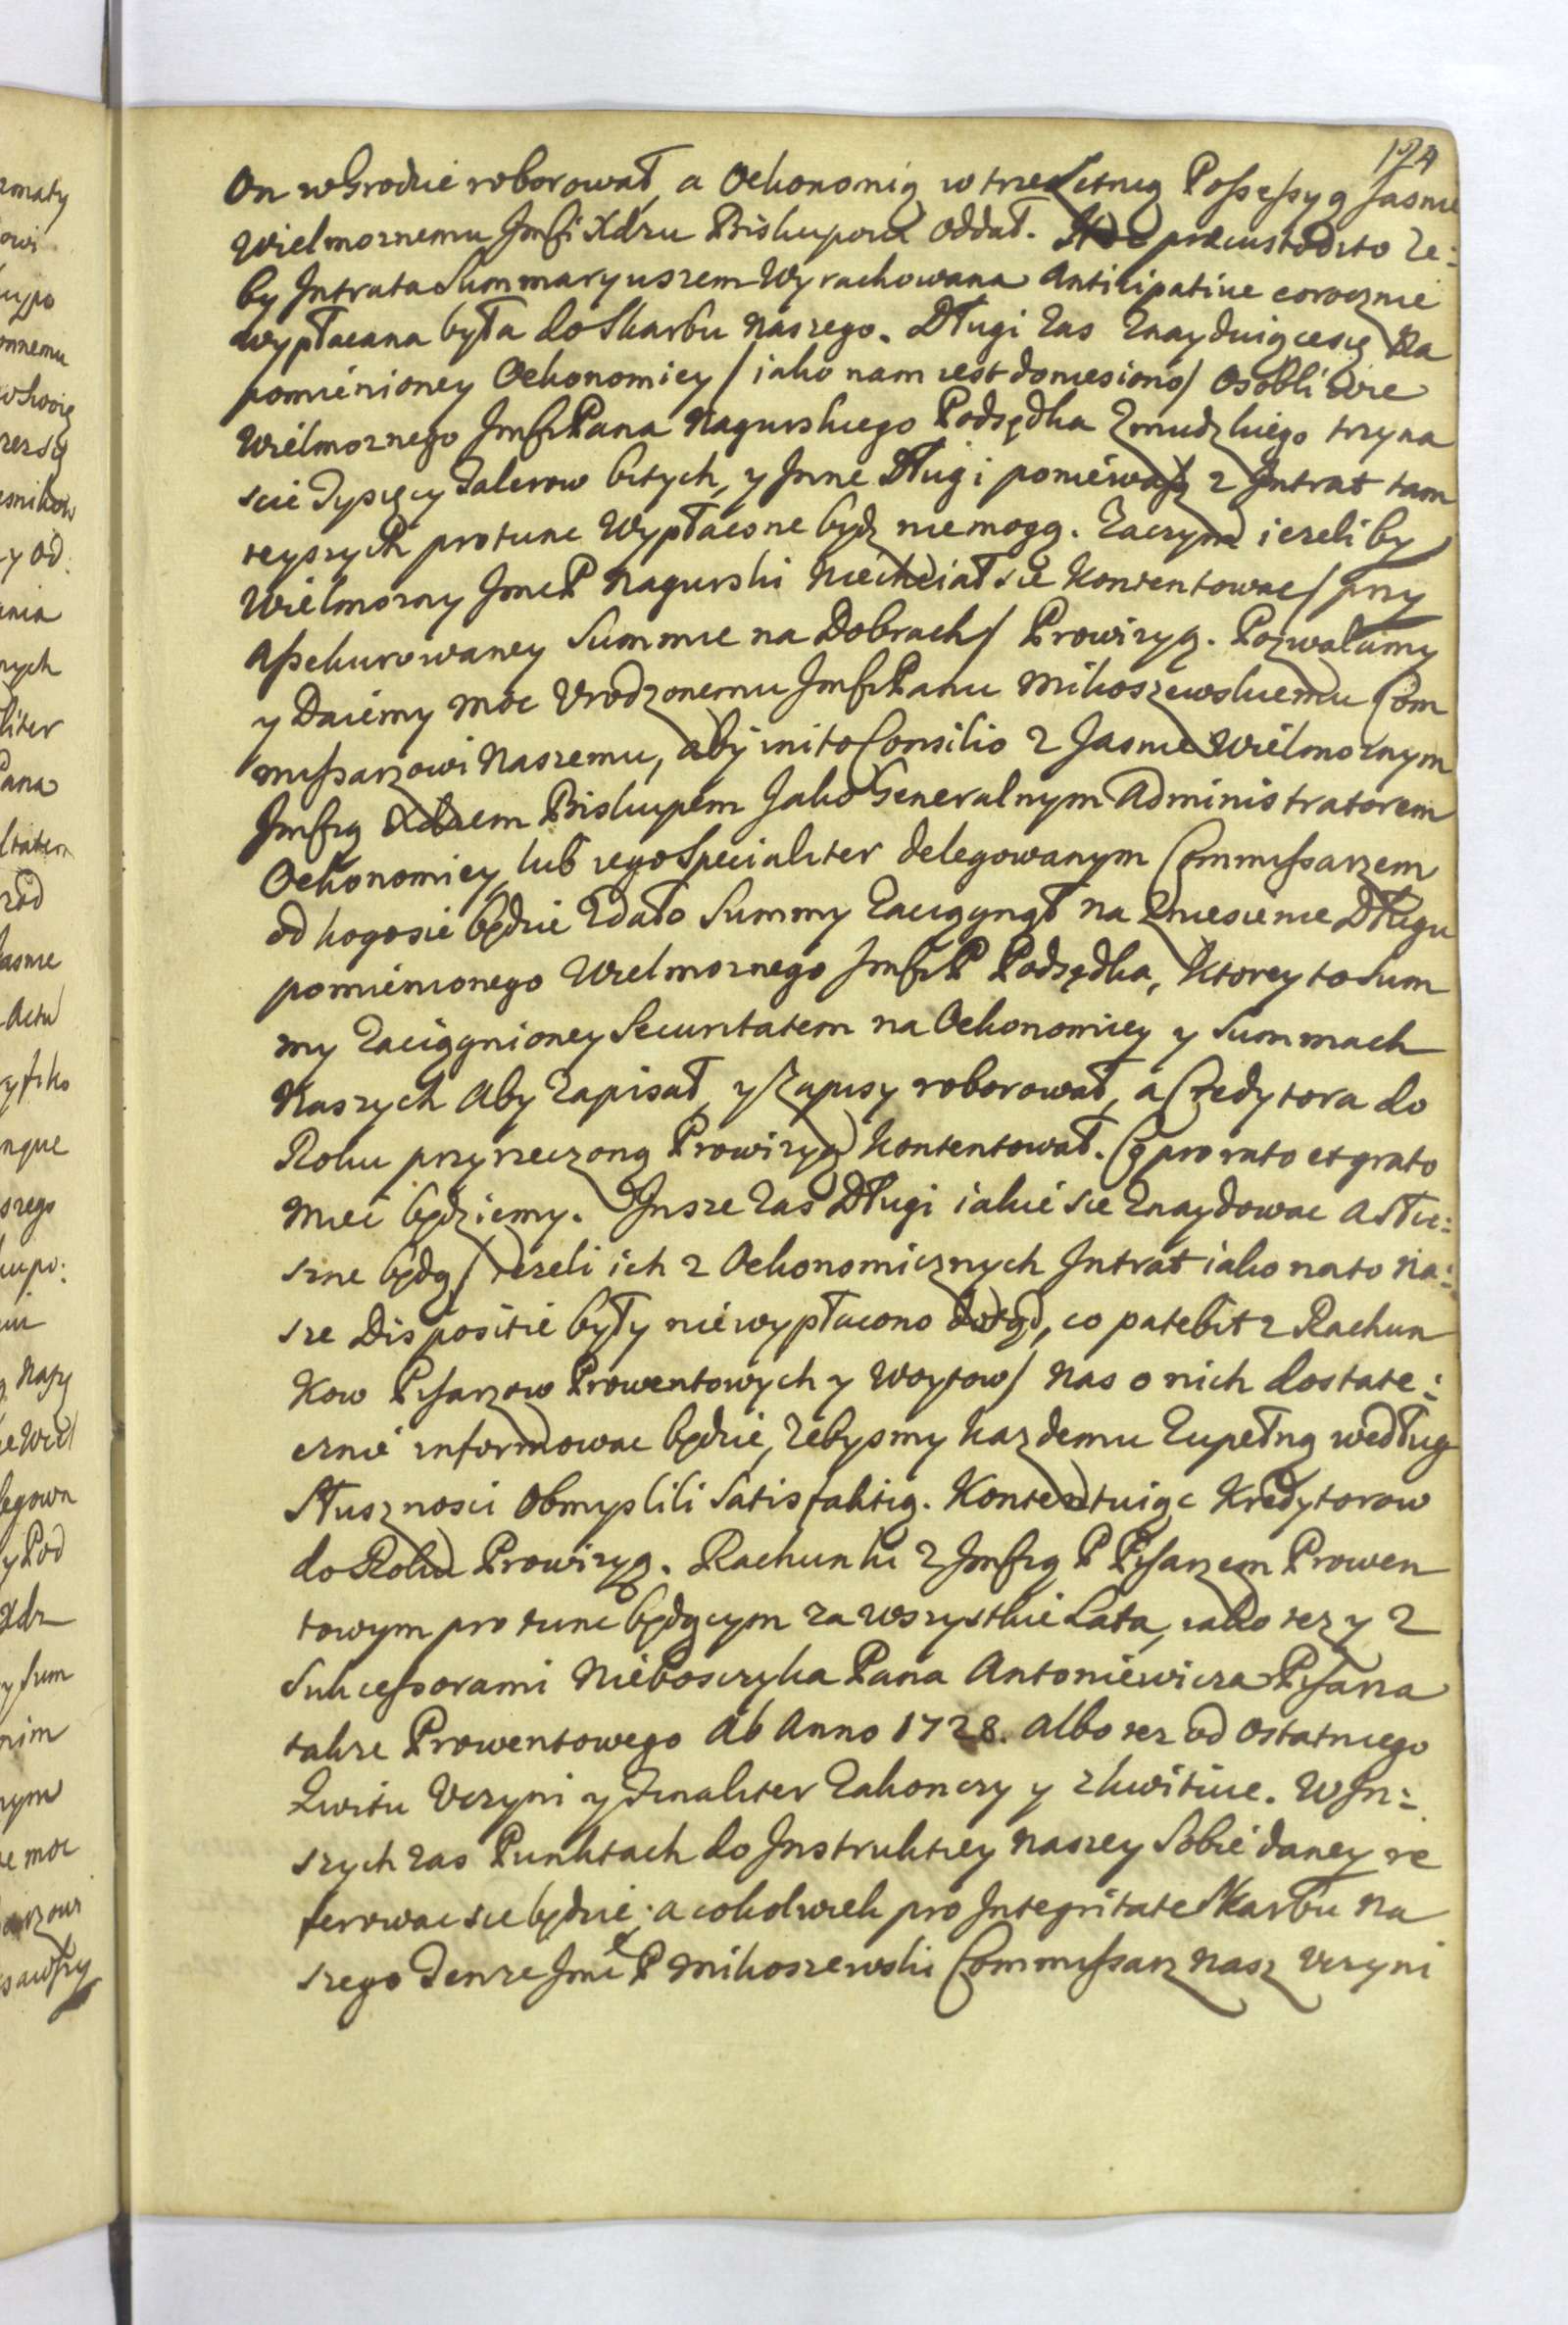 124
On w Grodzie roborował, a Oekonomią w trzecletnią Possessyą Jasnie
Wielmoznemu Jmści Xdzu Biskupowi oddał. Hoc praecustodito Ze:
by Intrata Summaryuszem Wyrachowana Anticipative corocznie
wypłacana była do Skarbu naszego. Długi zas Znayduiącesię Na
pomienioney Oekonomiey / iako nam iest doniesiono / osobliwie
Wielmoznego Jmści Pana Nagurskiego Podsędka Zmudzkiego trzyna
scie Tysięcy Talerow bitych, y Inne Długi poniewasz z Intrat tam
teyszych protunc Wypłacone bydz niemogą. Zaczym iezeliby
Wielmozny Jmc P Nagurski Niechciał sie Kontentowac / przy
Assekurowaney Summie na Dobrach / Prowizyą. Pozwalamy
y Daiemy moc Urodzonemu Jmści Panu Mikoszewskiemu Com
missarzowi Naszemu, aby inito Consilio z Jasnie Wielmoznym
Jmścią Xdzem Biskupem Jako Generalnym Administratorem
Oekonomiey, lub iego Specialiter delegowanym Commissarzem
od kogosie będzie Zdało Summy Zaciągynął na Zniesienie Długu
pomienionego Wielmoznego Jmści P Podsędka, Ktorey to Sum
my Zaciągnioney Securitatem na Oekonomiey y Summach
Naszych Aby Zapisał, y Zapisy roborował, a Credytora do
Roku przyrzeczoną Prowizyą Kontentował. Co pro rato et grato
Miec będziemy. Insze zas Długi iakie sie Znaydowac a Słu:
szne będą / iezeli ich z Oekonomicznych Intrat iako nato Na:
sze Dispositie były niewypłacono dotąd, co patebit z Rachun
Kow Pisarzow Prowentowych y Woytow / Nas o nich dostate:
cznie informowac będzie, zebysmy kazdemu Zupełną według
Słusznosci obmyslili Satisfaktią. Kontentuiąc Kredytorow
do Roku Prowizyą. Rachunki z Jmścią P Pisarzem Prowen
towym pro tunc będącym za wszystkie Lata, iako tez y z
Sukcessorami Nieboszczyka Pana Antoniewicza Pisarza
takze Prowentowego Ab Anno 1728. Albo tez od ostatniego
Kwitu Uczyni y Finaliter Zakonczy y zkwituie. W In:
szych zas Punktach do Instruktiey naszey Sobie daney re
ferowac sie będzie; a cokolwiek pro Integritate Skarbu Na
szego Tenze Jmc P Mikoszewski Commissarz Nasz Uczyni